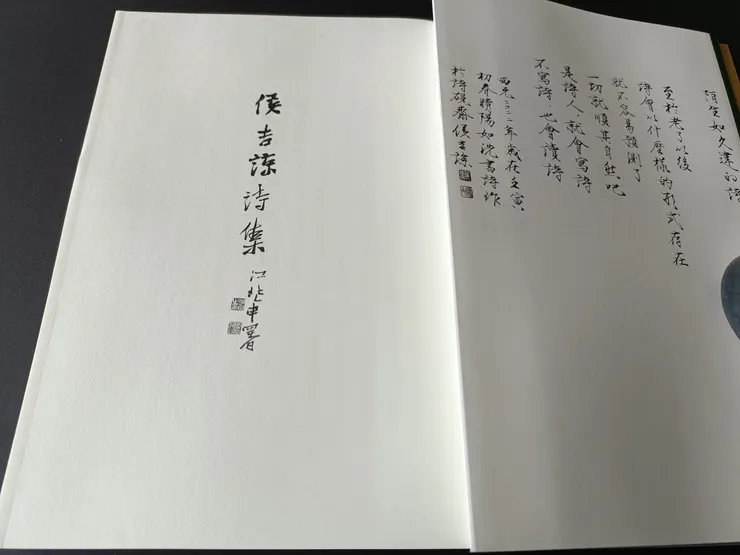 陌生如久違的詩
至於老了以後
詩會以什麼樣的形式存在
就不容易預測了
一切就順其自然吧
是詩人，就會寫詩
不寫詩，也會讀詩
西元二〇二二年歲在壬寅
初春晴陽如洗書詩作
於詩硯齋侯吉諒
侯吉諒詩集
江兆申署